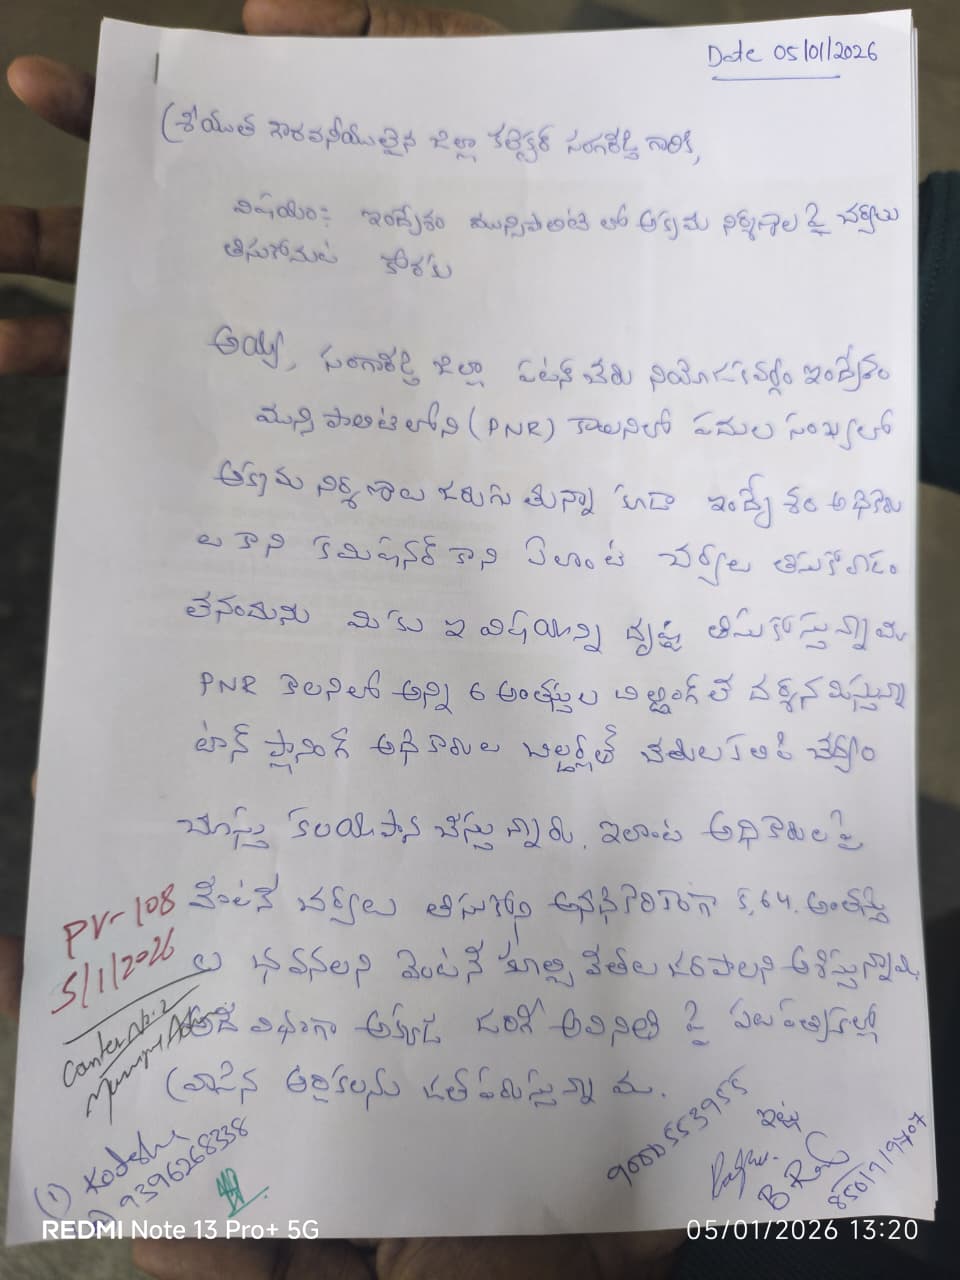 Date 05/01/2026
శ్రీయుత గౌరవనీయులైన జిల్లా కలెక్టర్ సంగారెడ్డి గారికి,
విషయం:- ఇంద్రేశం మున్సిపాలిటి లో అక్రమ నిర్మాణాల పై చర్యలు
తిసుగోనుట కోరకు
అయ్యా, సంగారెడ్డి జిల్లా పటన్ చేరు నియోజకవర్గం ఇంద్రేశం
మున్సిపాలిటిలోని (PNR) కాలనిలో పదుల సంఖ్యలో
అక్రమ నిర్మాణాల జరుగుతున్నా కూడా ఇంద్రేశం అధికారు
ల కాని కమిషనర్ కాని ఏలాంటి చర్యల తిసుకోవడం
లేనందును మికు ఇ విషయాన్ని దృష్టి తిసుకోస్తున్నాము
PNR కాలనిలో అన్ని 6 అంతస్తుల బిల్డింగ్ లే దర్శనమిస్తున్నా
టౌన్ ప్లానింగ్ అధికారుల బిల్డర్లతో చేతులు కలిపి చోద్యం
చూస్తు కాలయాపన చేస్తున్నారు. ఇలాంటి అధికారులపై
వేంటనే చర్యలు తిసుకోని అనధికారికంగా 5,6 అంతస్తు
ల భవనలని వెంటనే కూల్చి వేతల జరపాలని ఆశిస్తున్నాము,
అదే విధంగా అక్కడ జరిగే అవినితి పై పలు పత్రికల్లో
వ్రాసిన ఆర్టికలను జతపరుస్తున్నాము.
PV-108
5/1/2026
ఇట్లు
9000553955
B Ravi
8501719707
(1) Kodesh
9396268338
REDMI Note 13 Pro+ 5G
05/01/2026 13:20